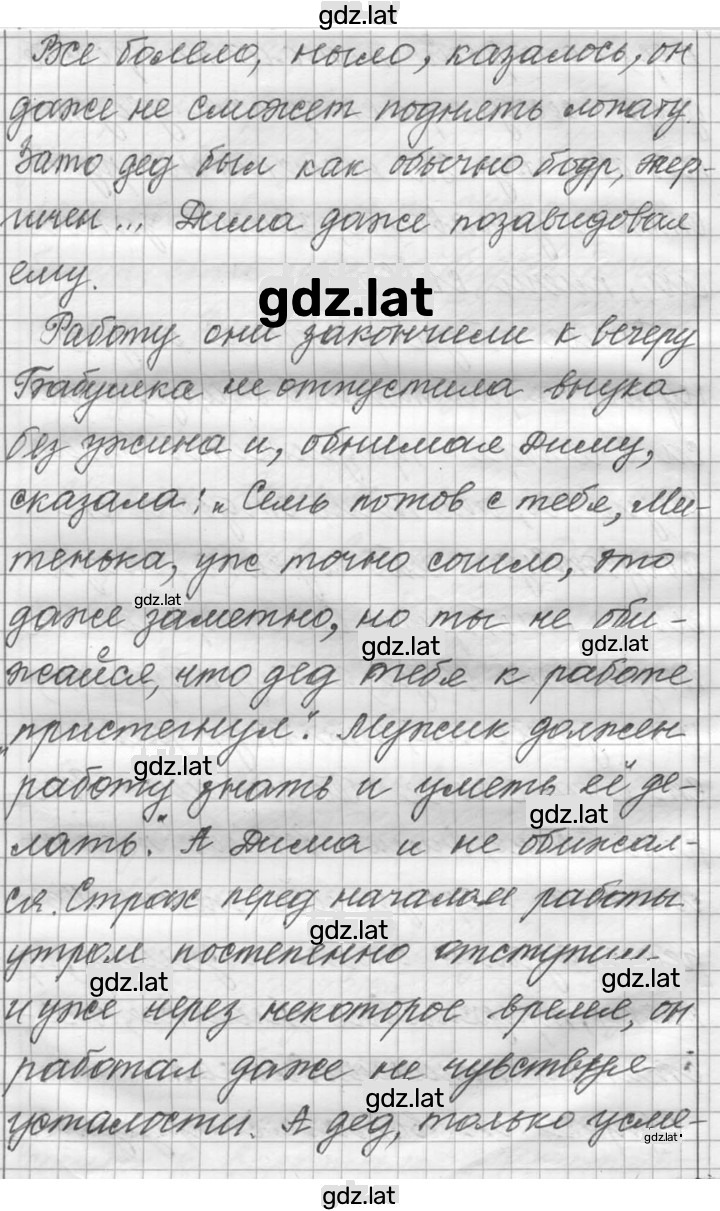 gdz.lat
Все болело, ныло, казалось, он
даже не сможет поднять лопату.
Зато дед был как обычно бодр, энер-
гичен... Дима даже позавидовал
ему.
gdz.lat
Работу они закончили к вечеру
Бабушка не отпустила внука
без ужина и, обнимая Диму,
сказала: „Семь потов с тебя, Ми-
тенька, уж точно сошло, это
gdz.lat
даже заметно, но ты не оби-
gdz.lat gdz.lat
жайся, что дед тебя к работе
„пристегнул". Мужик должен
gdz.lat
работу знать и уметь её де-
gdz.lat
лать." А Дима и не обижал-
ся. Страх перед началом работы
gdz.lat
утром постепенно отступил
gdz.lat gdz.lat
и уже через некоторое время, он
работал даже не чувствуя
gdz.lat
усталости. А дед, только усме-
gdz.lat
gdz.lat